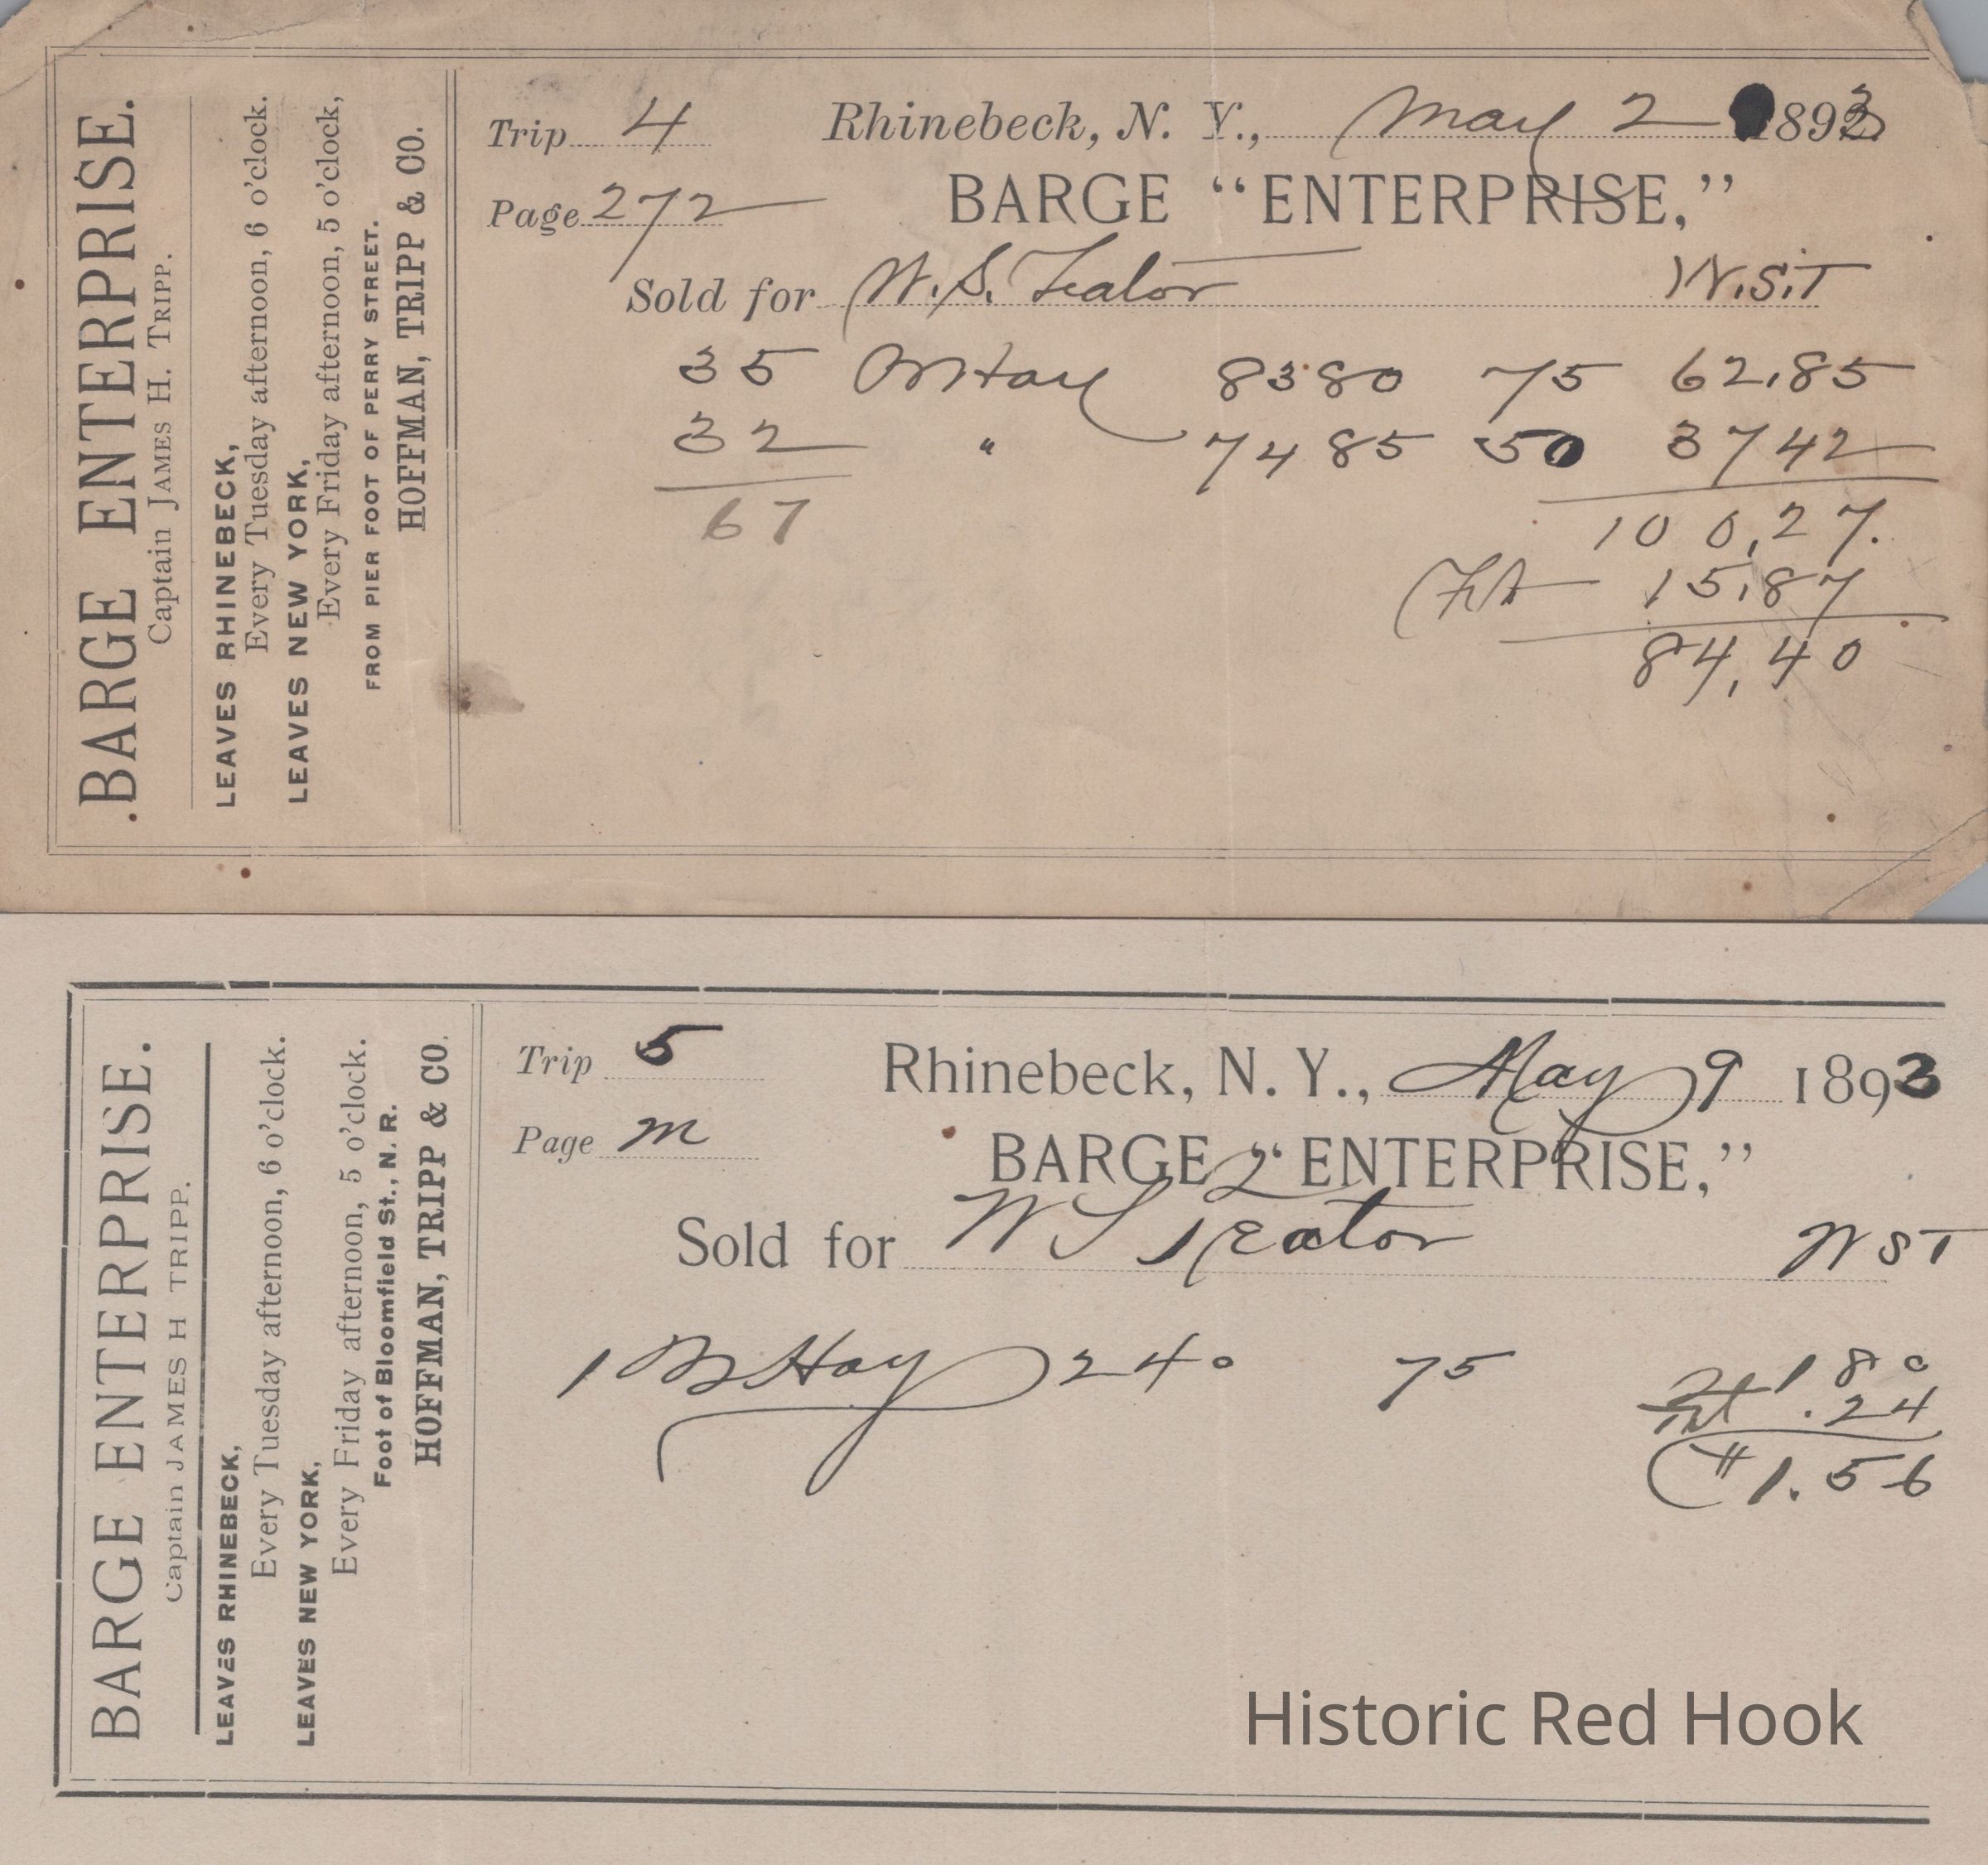 .BARGE ENTERPRISE.
Captain JAMES H. TRIPP.
LEAVES RHINEBECK,
Every Tuesday afternoon, 6 o'clock.
LEAVES NEW YORK,
Every Friday afternoon, 5 o'clock,
FROM PIER FOOT OF PERRY STREET.
HOFFMAN, TRIPP & CO.
Trip 4 Rhinebeck, N. Y., May 2 1893
Page 272 BARGE "ENTERPRISE,"
Sold for W. S. Teator W.S.T
35 B Hay 8380 75 62.85
32 " 7485 50 3742
67 100,27.
Frt 15.87
84,40
BARGE ENTERPRISE.
Captain JAMES H TRIPP.
LEAVES RHINEBECK,
Every Tuesday afternoon, 6 o'clock.
LEAVES NEW YORK,
Every Friday afternoon, 5 o'clock.
Foot of Bloomfield St., N. R.
HOFFMAN, TRIPP & CO.
Trip 5 Rhinebeck, N. Y., May 9 1893
Page m BARGE "ENTERPRISE,"
Sold for W S Teator W S T
1 B Hay 240 75 1 80
Frt .24
$1.56
Historic Red Hook